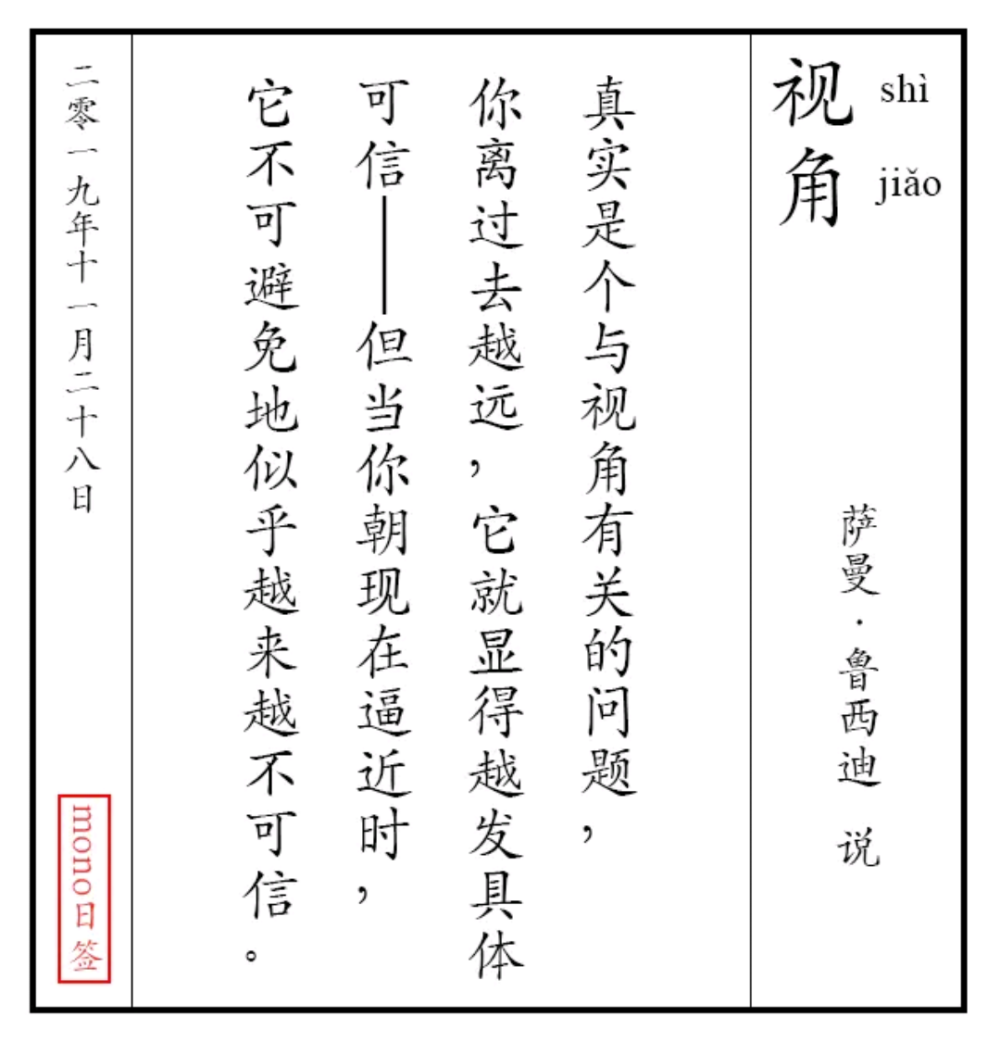 视角
shì
jiǎo
萨曼·鲁西迪 说
真实是个与视角有关的问题，
你离过去越远，它就显得越发具体
可信——但当你朝现在逼近时，
它不可避免地似乎越来越不可信。
二零一九年十一月二十八日
mono日签